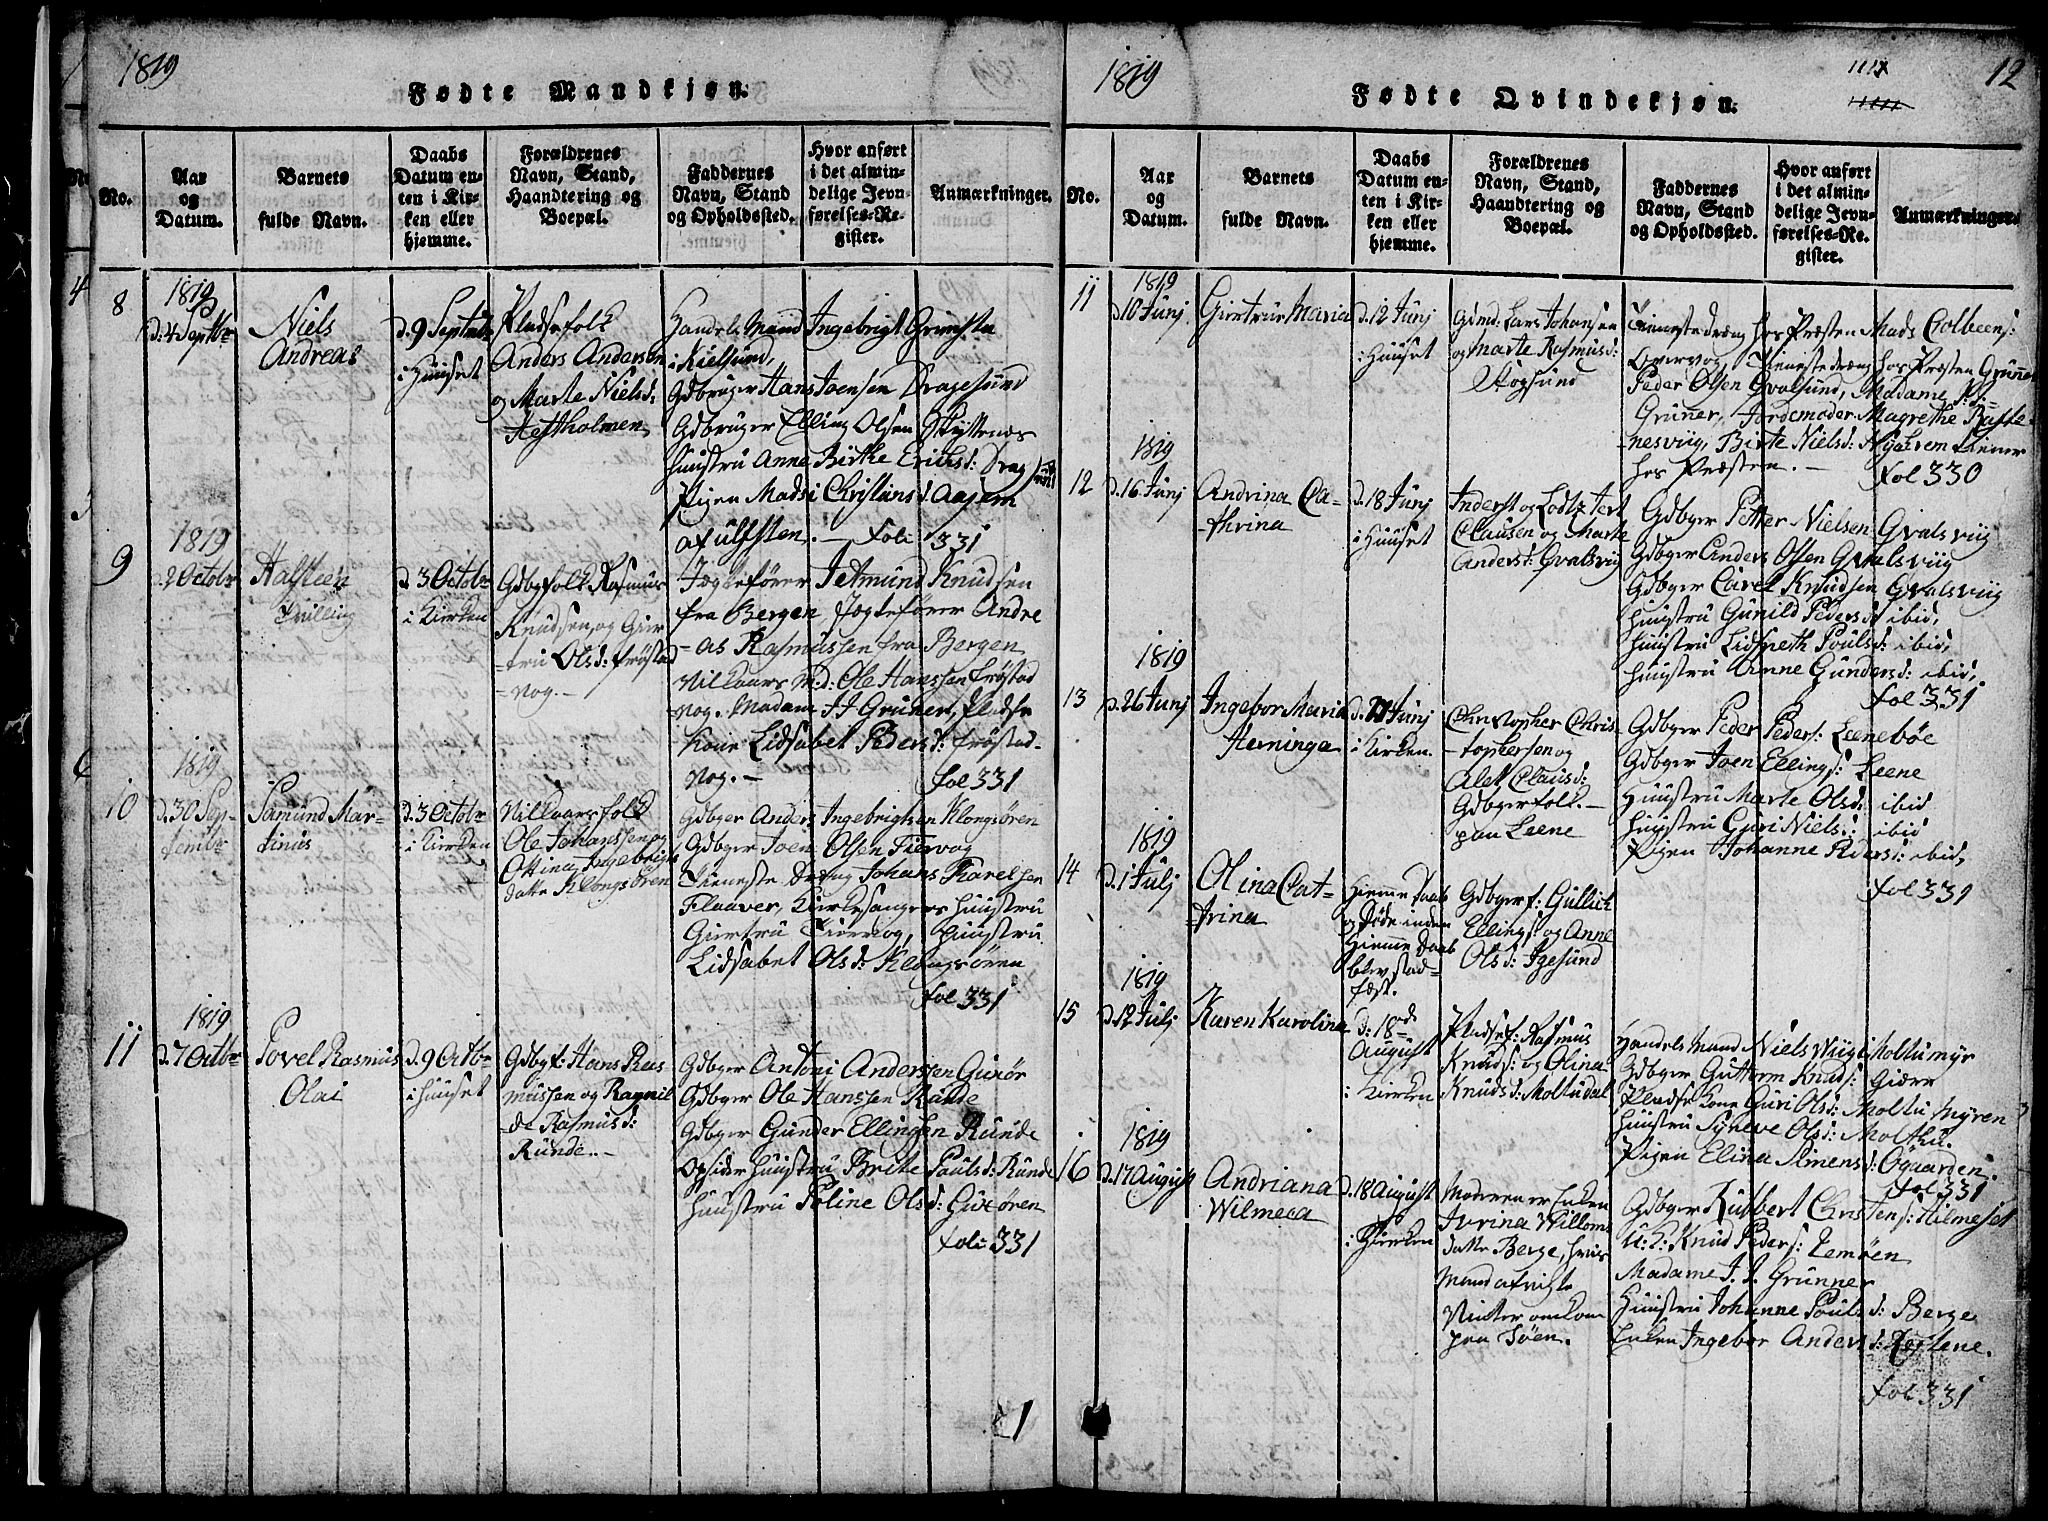 1819
Fødte Mandkjøn.
No.
Aar
og
Datum.
Barnets
fulde Navn.
Daabs
Datum en-
ten i Kir-
ken eller
hjemme.
Forældrenes
Navn, Stand,
Haandtering og
Boepæl.
Faddernes
Navn, Stand
og Opholdssted.
Hvor anført
i det almin-
delige Jevn-
førelses-Re-
gister.
Anmærkninger.
8
1819
d. 4 Septbr
Niels
Andreas
d. 9 Septbr
i Huuset
Pladsefolk
Anders Andersen
og Marte Nielsd:
Hestholmen
Handels Mand Ingebrigt Grimsta
i Kielsund,
Gdbruger Hans Joensen Dragesund
Gdbruger Elling Olsen Skyttenæs
Huustru Anne Birthe Erichsd: Dragsund
Pigen Madsi Christiansd. Aajem
af Ulfsten. – Foli 331
9
1819
d. 2 Octobr
Halsteen
Tvilling
d. 3 Octobr
i Kirken
Gdbgfolk Rasmus
Knudsen, og Gier
-tru Olsd: Frøstad
-vog.-
Jægtefører Jetmund Knudsen
fra Bergen, Jægtefører Andre
-as Rasmussen fra Bergen
Vilkaars Md: Ole Hanssen Frøstad
-vog. Madam JJ Gruner, Pladse
Kone Lidsabet Pedersd: Frøstad-
vog.-
fol 331
10
1819
d. 30 Sep-
tembr
Samund Mar-
tinus
d. 3 Octobr
i Kirken
Villaarsfolk
Ole Johanssen og
Ottina Ingebrigts
datte Klongsøren
Gdbger Anders Ingebrigtsen Klongsøren
Gdbger Joen Olsen Tiervog
Tieneste Dreng Johans Karelsen
Flaaver, Kirkesangers Huustru
Giertru Tiervog, Huustru
Lidsabet Olsd: Klongsøren
fol 331
11
1819
d. 7 Octbr
Povel Rasmus
Olai
d. 9 Octb-
i Huuset
Gdbgf: Hans Ras
mussen og Ragnil
-de Rasmusd:
Runde.-
Gdbger Antoni Anderssen Gurør
Gdbger Ole Hanssen Runde
Gdbger Gunder Ellingsen Runde
Opsider Huustru Brite Paulsd: Runde
Huustru Poline Olsd: Gurøren
foli 331
1819
Fødte Qvindekjøn.
12
No.
Aar
og
Datum.
Barnets
fulde Navn.
Daabs
Datum en-
ten i Kir-
ken eller
hjemme.
Forældrenes
Navn, Stand,
Haandtering og
Boepæl.
Faddernes
Navn, Stand
og Opholdssted.
Hvor anført
i det almin-
delige Jevn-
førelses-Re-
gister.
Anmærkninger.
11
1819
d. 10 Junj
Giertrue Maria
d. 12 Junj
i Huuset
Gdmd. Lars Johansen
og Marte Rasmusd:
Støgsund
Tienestedræng hos Præsten Mads Colbeens:
Tienestedræng hos Præsten Gruner
Peder Olsen Qvalsund, Madame J. J.
Gruner, Jordemoder Magrethe
nesviig, Birte Nielsd:
hos Præsten.-
fol 330
12
1819
d. 16 Junj
Andrina Ca-
-thrina
d. 18 Junj
i Huuset
Inderst og Lods Iert
Clausen og Marte
Andersd: Gvalsviig
Gdbger Petter Nielsen Gvalsviig
Gdbger Anders Olsen Gvalsviig
Gdbger Carel Knudsen Gvalsviig
Huustru Gunild Pedersd ibid,
Huustru Lidsneth Poulsd: ibid,
Huustru Anne Gundersd: ibid,
fol 331
13
1819
d. 26 Junj
Ingebor Maria
Heminga
d. 27 Junj
i Kirken.
Christopher Chris
-tophersen og
Alet Clausd:
Gdbgerfolk.-
paa Leene
Gdbger Peder Peders: Leenebøe
Gdbger Joen Ellings: Leene
Huustru Marte Olsd: ibid
Huustru Guri Nielsd: ibid
Pigen Johanne Pedersd: ibid,
fol 331
14
1819
d. 1 Julj
Olina Cat-
-trina
Hieme Daab
og Døde inden
Hieme Daab
blev stad-
fæst.
Gdbgerf: Gullick
Ellings: og Anne
Olsd: Igesund
15
1819
d. 12 Julj
Karen Karolina
d. 18de
August
i Kirken
Pladsef: Rasmus
Knuds: og Olina
Knudsd: Moltudal
Handels Mand Niels Wiigi Moltumyr
Gdbger Gutterm Knuds: Giære
Pladse Kone Guri Olsd: Moltu Myren
Huustru Syneve Olsd: Molthu.
Pigen Elina Simensd: Øgaarden.
fol 331
16
1819
d. 17 August
Andriana
Wilmeca
d. 18 August
i Kirken
Moderen er Enken
Jvrina Willoms
datte Berge, hvis
Mand afvigte
Vinter omkom
paa Søen.
Gdbger Rubbert Christens: Hilmeset
U: K: Knud Peders: Remøen
Madame J. J. Grunner
Huustru Johanne Poulsd: Berge
Enken Ingebor Andersd:
fol 331